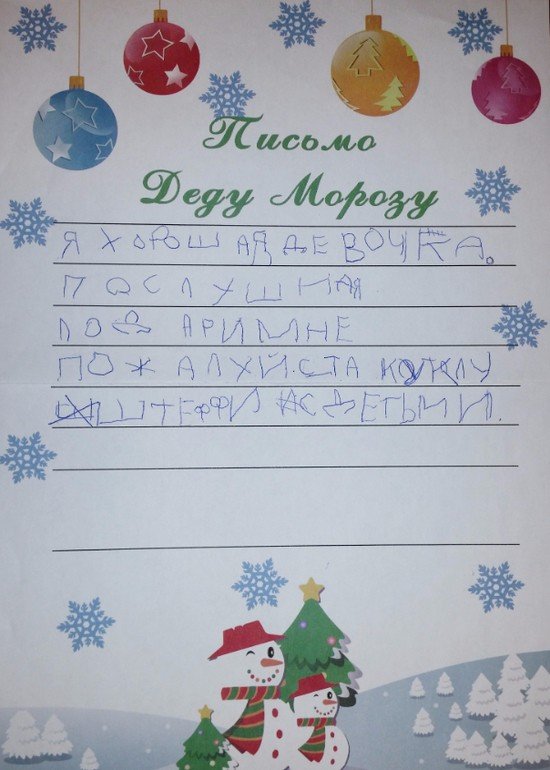 Письмо
Деду Морозу
Я ХОРОШАЯ ДЕВОЧКА.
ПОСЛУШНАЯ
ПОДАРИ МНЕ
ПОЖАЛХУЙСТА КУКЛУ
ШТЕФФИ С ДЕТЬМИ.